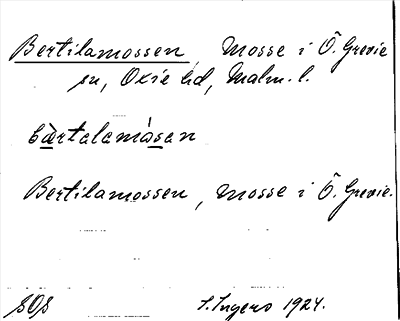 Bertilamossen, Mosse i Ö. Grevie
sn, Oxie hd, Malm. l.
bà̱rtalamåsan
Bertilamossen, Mosse i Ö. Grevie.
SOS I. Ingers 1924.